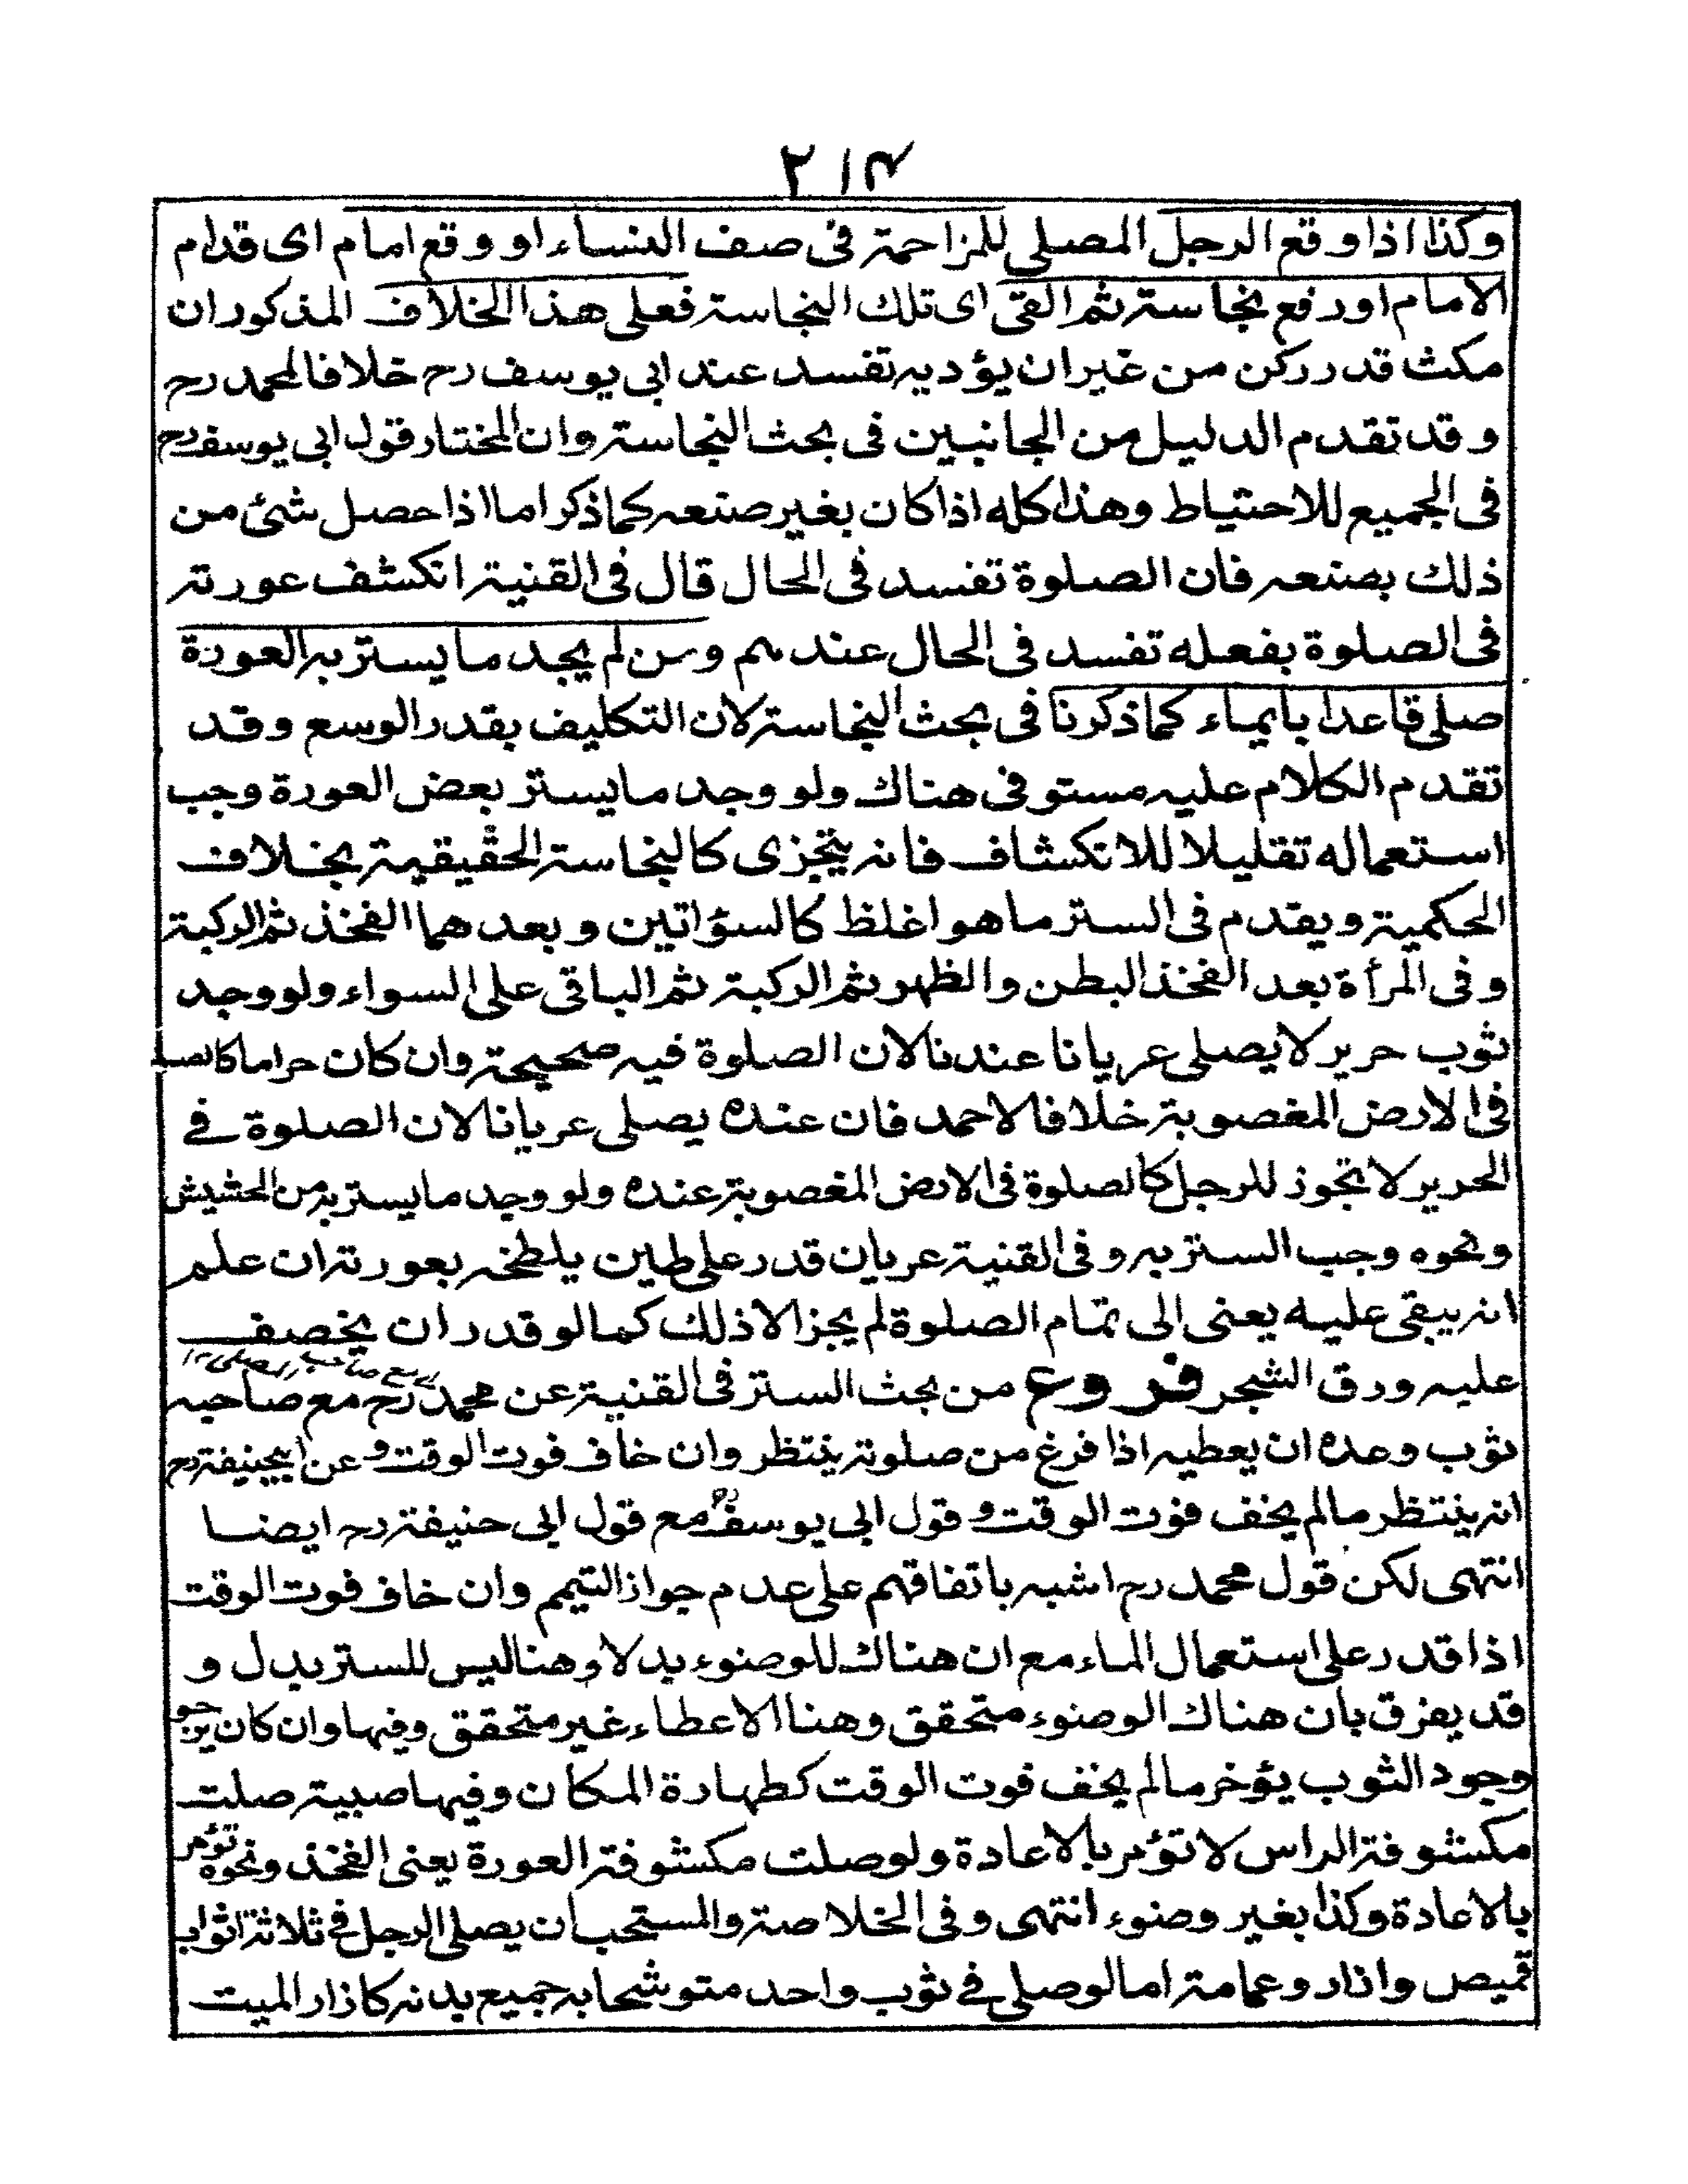 ٢١٤
وكذا اذا وقع الرجل المصلى للمزاحمة فى صف النساء او وقع امام اى قدام
الامام او رفع نجاسة ثم القى اى تلك النجاسة فعلى هذا الخلاف المذكور ان
مكث قدر ركن من غير ان يؤديه تفسد عند ابى يوسف رح خلافا لمحمد رح
و قد تقدم الدليل من الجانبين فى بحث النجاسة وان المختار قول ابى يوسف رح
فى الجميع للاحتياط وهذا كله اذا كان بغير صنعه كما ذكر اما اذا حصل شئ من
ذلك بصنعه فان الصلوة تفسد فى الحال قال فى القنية انكشف عورته
فى الصلوة بفعله تفسد فى الحال عندهم ومن لم يجد ما يستر به العورة
صلى قاعدا بايماء كما ذكرنا فى بحث النجاسة لان التكليف بقدر الوسع وقد
تقدم الكلام عليه مستوفى هناك ولو وجد ما يستر بعض العورة وجب
استعماله تقليلا للانكشاف فانه يتجزى كالنجاسة الحقيقية بخلاف
الحكمية ويقدم فى الستر ما هو اغلظ كالسؤاتين و بعد هما الفخذ ثم الركبة
و فى المرأة بعد الفخذ البطن والظهر ثم الركبة ثم الباقى على السواء ولو وجد
ثوب حرير لا يصلى عريانا عندنا لان الصلوة فيه صحيحة وان كان حراما كالصلـ
فى الارض المغصوبة خلافا لاحمد فان عنده يصلى عريانا لان الصلوة فے
الحرير لا تجوز للرجل كالصلوة فى الارض المغصوبة عنده ولو وجد ما يستر به من الحشيش
ونحوه وجب الستر به و فى القنية عريان قدر على طين يلطخه بعورته ان علم
انه يبقى عليه يعنى الى تمام الصلوة لم يجز الا ذلك كما لو قدر ان يخصف
عليه ورق الشجر فروع من بحث الستر فى القنية عن محمد رح مع صاحبه
ثوب وعده ان يعطيه اذا فرغ من صلوته ينتظر وان خاف فوت الوقت و عن ابيحنيفة رح
انه ينتظر ما لم يخف فوت الوقت و قول ابى يوسف رح مع قول ابى حنيفة رح ايضا
انتهى لكن قول محمد رح اشبه باتفاقهم على عدم جواز التيمم وان خاف فوت الوقت
اذا قدر على استعمال الماء مع ان هناك للوضوء بدلا و هنا ليس للستر بدل و
قد يفرق بان هناك الوضوء متحقق وهنا الاعطاء غير متحقق وفيها وان كان يرجو
وجود الثوب يؤخر ما لم يخف فوت الوقت كطهارة المكان وفيها صبية صلت
مكشوفة الراس لا تؤمر بالاعادة ولو صلت مكشوفة العورة يعنى الفخذ ونحوه تؤمر
بالاعادة وكذا بغير وضوء انتهى و فى الخلاصة والمستحب ان يصلى الرجل فى ثلاثة اثواب
قميص وازار وعمامة اما لو صلى فے ثوب واحد متوشحا به جميع بدنه كازار الميت